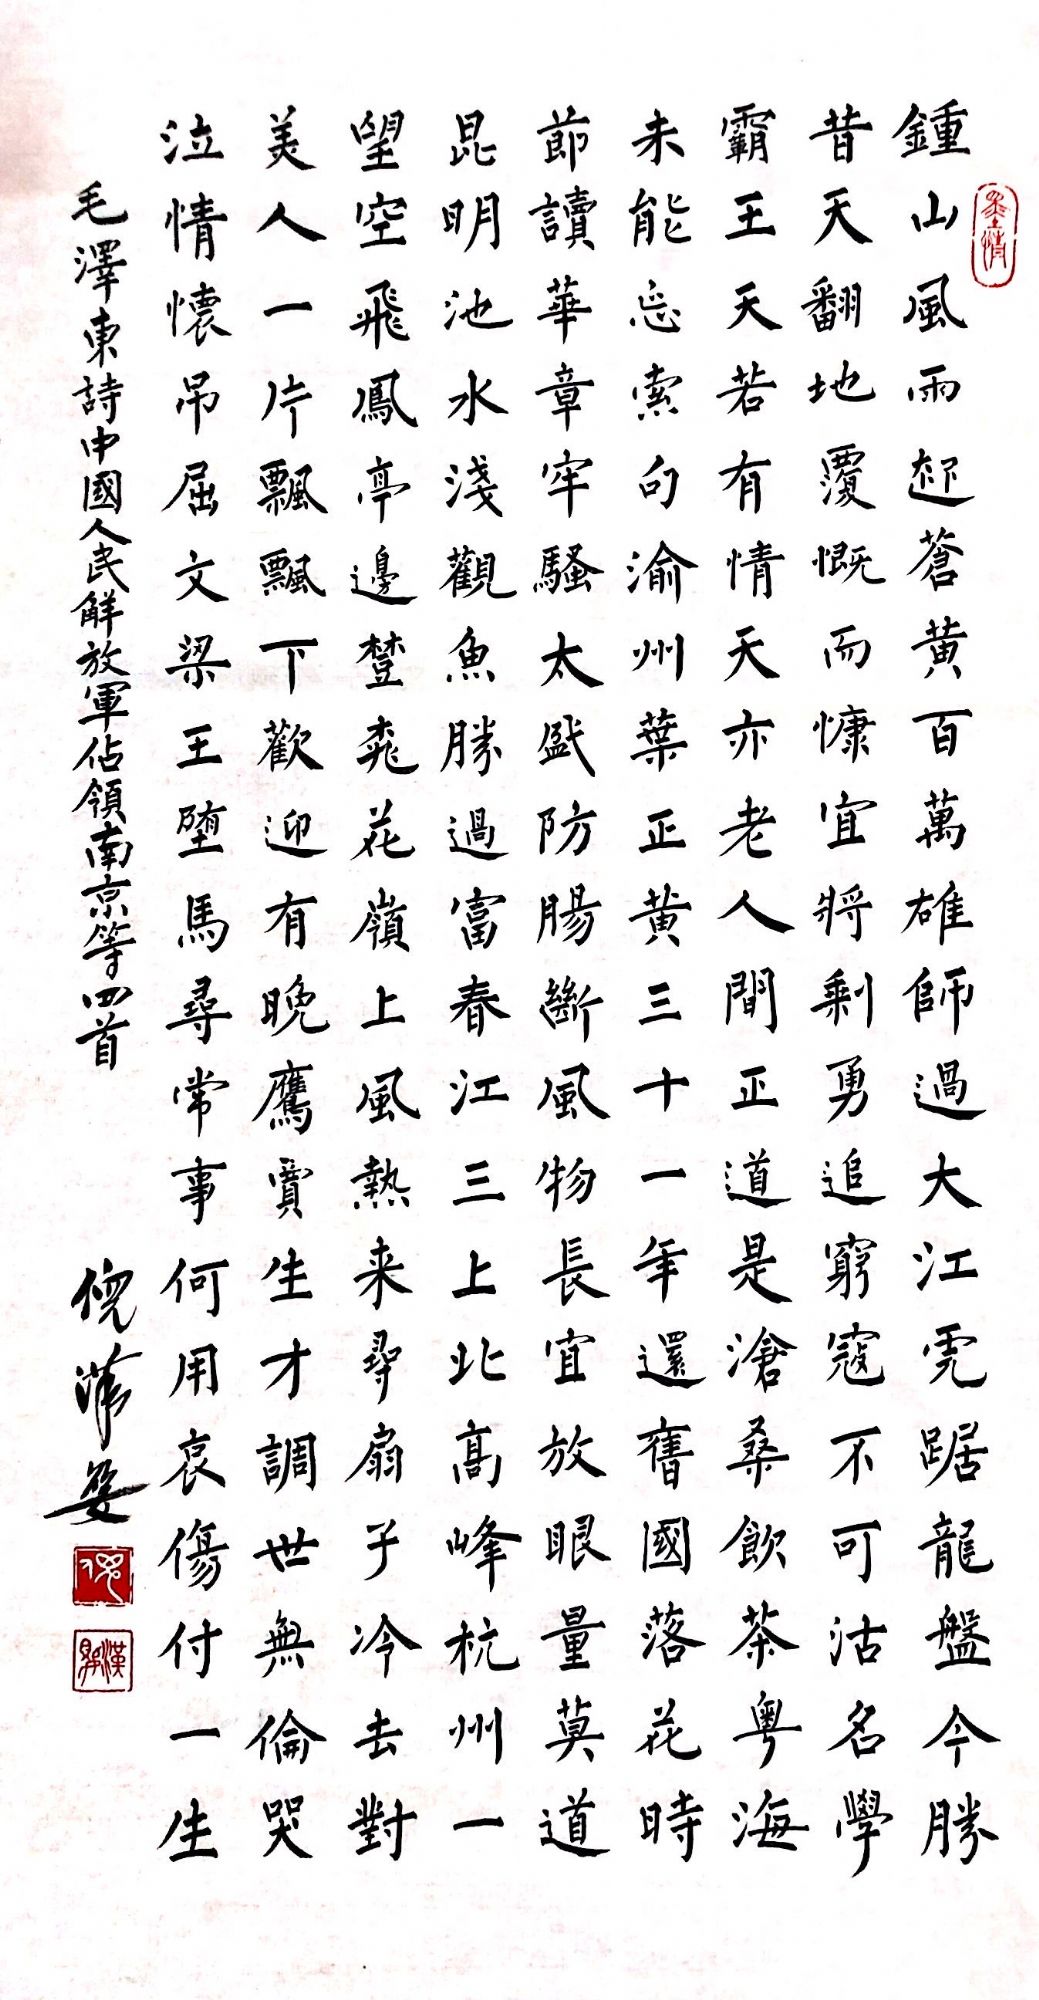 墨情
鍾山風雨起蒼黃百萬雄師過大江虎踞龍盤今勝
昔天翻地覆慨而慷宜將剩勇追窮寇不可沽名學
霸王天若有情天亦老人間正道是滄桑飲茶粵海
未能忘索句渝州葉正黃三十一年還舊國落花時
節讀華章牢騷太盛防腸斷風物長宜放眼量莫道
昆明池水淺觀魚勝過富春江三上北高峰杭州一
望空飛鳳亭邊樹桃花嶺上風熱来尋扇子冷去對
美人一片飄飄下歡迎有晚鷹賈生才調世無倫哭
泣情懷吊屈文梁王墮馬尋常事何用哀傷付一生
毛澤東詩中國人民解放軍佔領南京等四首
倪漢
倪
漢